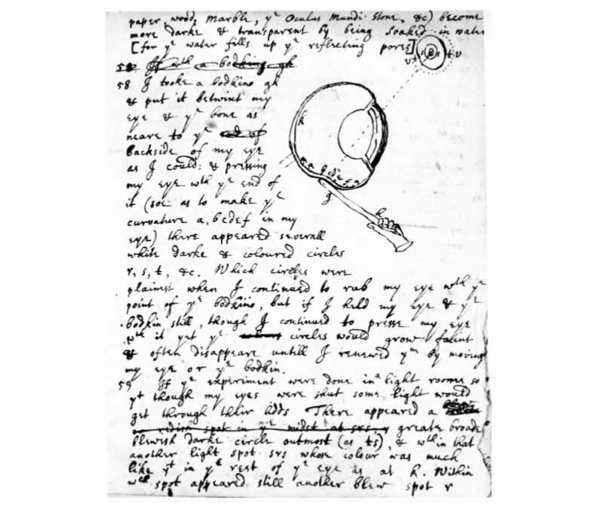 paper, wood, marble, yᵉ Oculus Mundi stone, &c) become
more darke & transparent by being soaked in water
[for yᵉ water fills up yᵉ reflecting pores]
58 If wth a bodkine gh
58 I tooke a bodkine gh
& put it betwixt my
eye & yᵉ bone as
neare to yᵉ
backside of my eye
as I could: & pressing
my eye wth yᵉ end of
it (soe as to make yᵉ
curvature a, bcdef in my
eye) there appeared severall
white darke & coloured circles
r, s, t, &c. Which circles were
plainest when I continued to rub my eye wth yᵉ
point of yᵉ bodkine, but if I held my eye & yᵉ
bodkin still, though I continued to presse my eye
wth it yet yᵉ circles would grow faint
& often disappeare untill I renewed yᵐ by moving
my eye or yᵉ bodkin.
59 If yᵉ experiment were done in a light roome so
yt though my eyes were shut some light would
get through their lidds There appeared a
redish spot in yᵉ midst at srs, greate broade
blewish darke circle outmost (as ts), & wthin that
another light spot srs whose colour was much
like yt in yᵉ rest of yᵉ eye as at k. Within
wch spot appeared still another blew spot r